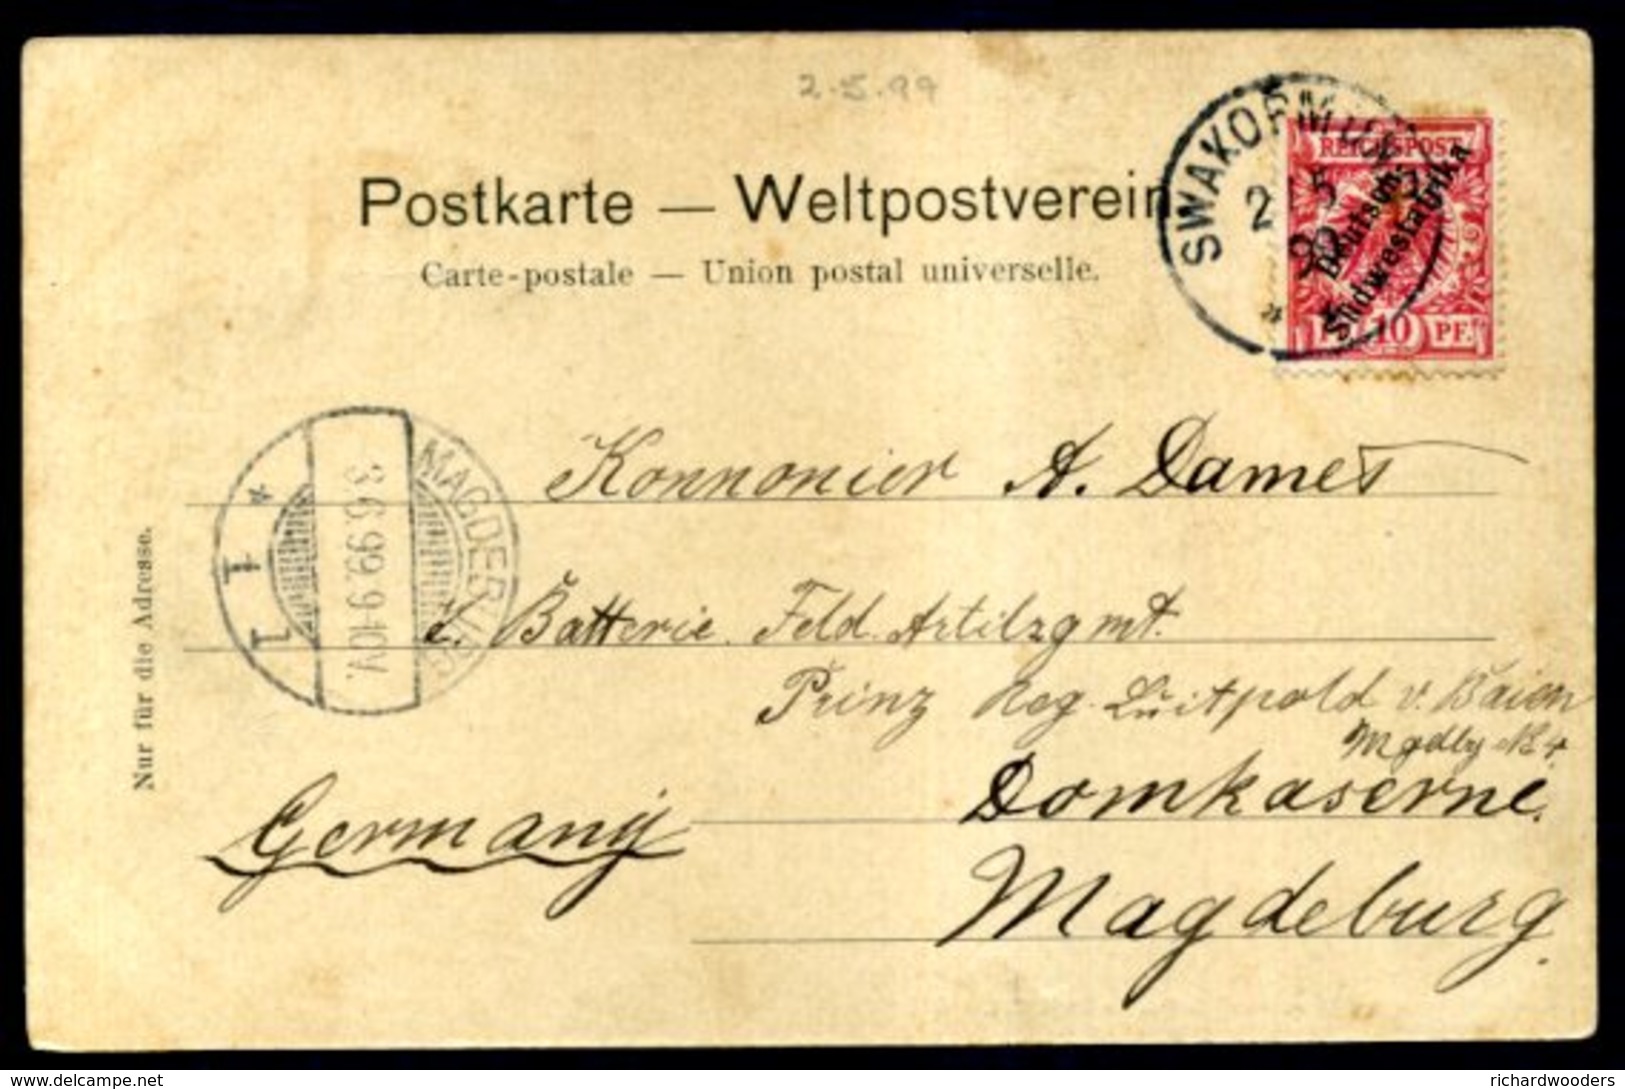 2.5.99
Postkarte — Weltpostverein
Carte-postale — Union postal universelle.
SWAKOPMUND
2 5
99
REICHSPOST
Deutsch-
Südwestafrika
10 PF.
MAGDEBURG
3.6.99.9-10V.
1 1
Nur für die Adresse.
Kannonier A. Dames
Batterie Feld. Artilrgmt.
Prinz Reg. Luitpold v. Baiern
Mgdbg No 4.
Domkaserne.
Germany
Magdeburg.
richardwooders